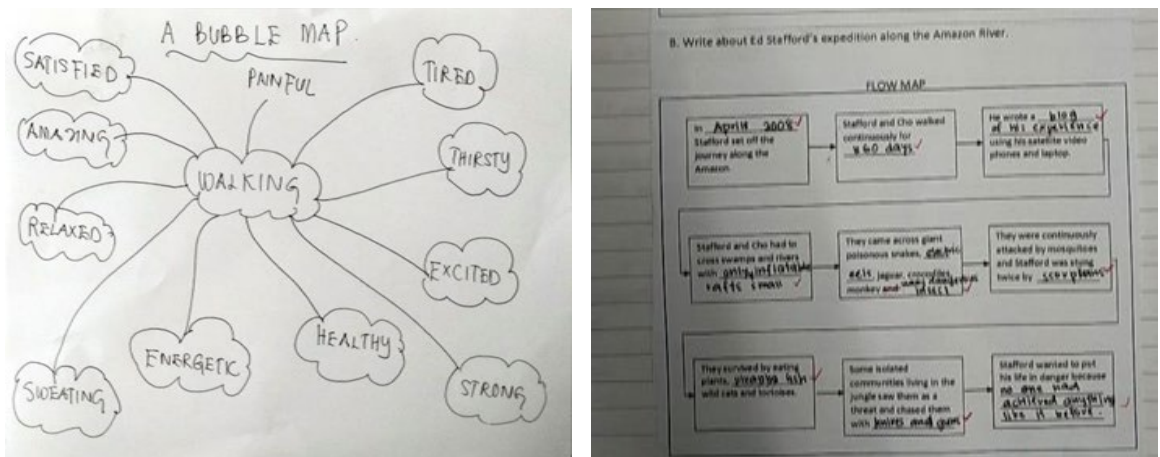 A BUBBLE MAP.
SATISFIED
PAINFUL
TIRED
AMAZING
THIRSTY
WALKING
RELAXED
EXCITED
HEALTHY
ENERGETIC
SWEATING
STRONG
B. Write about Ed Stafford's expedition along the Amazon River.
FLOW MAP
In April 2008
Stafford set off the
journey along the
Amazon.
Stafford and Cho walked
continuously for
860 days
He wrote a blog
of his experience
using his satellite video
phones and laptop.
Stafford and Cho had to
cross swamps and rivers
with only inflatable
rafts small
They came across giant
poisonous snakes, electric
eels, jaguar, crocodiles,
monkey and
They were continuously
attacked by mosquitoes
and Stafford was stung
twice by scorpions
They survived by eating
plants, piranha fish
wild cats and tortoises.
Some isolated
communities living in the
jungle saw them as a
threat and chased them
with knives and guns
Stafford wanted to put
his life in danger because
no one had
achieved anything
like it before.